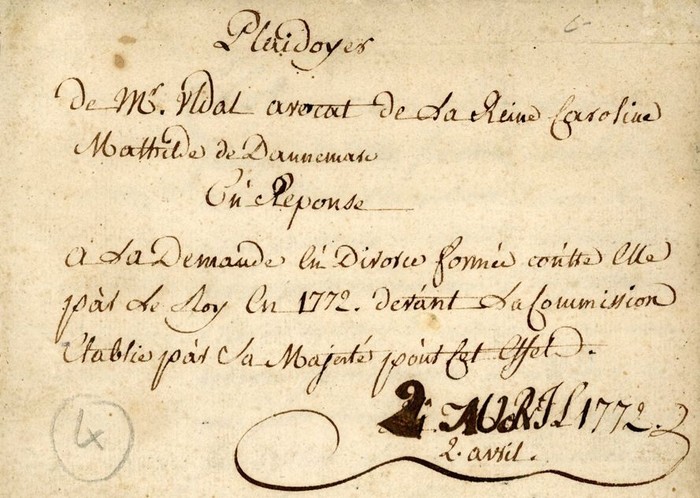 Plaidoyer
de Mr. Uldal avocat de La Reine Caroline
Mathilde de Dannemarc
En Reponse
a La Demande En Divorce formée contre Elle
par Le Roy En 1772. devant La Commission
Etablie par Sa Majesté pour Cet Effet.
2. AVRIL 1772.
2. avril.
4